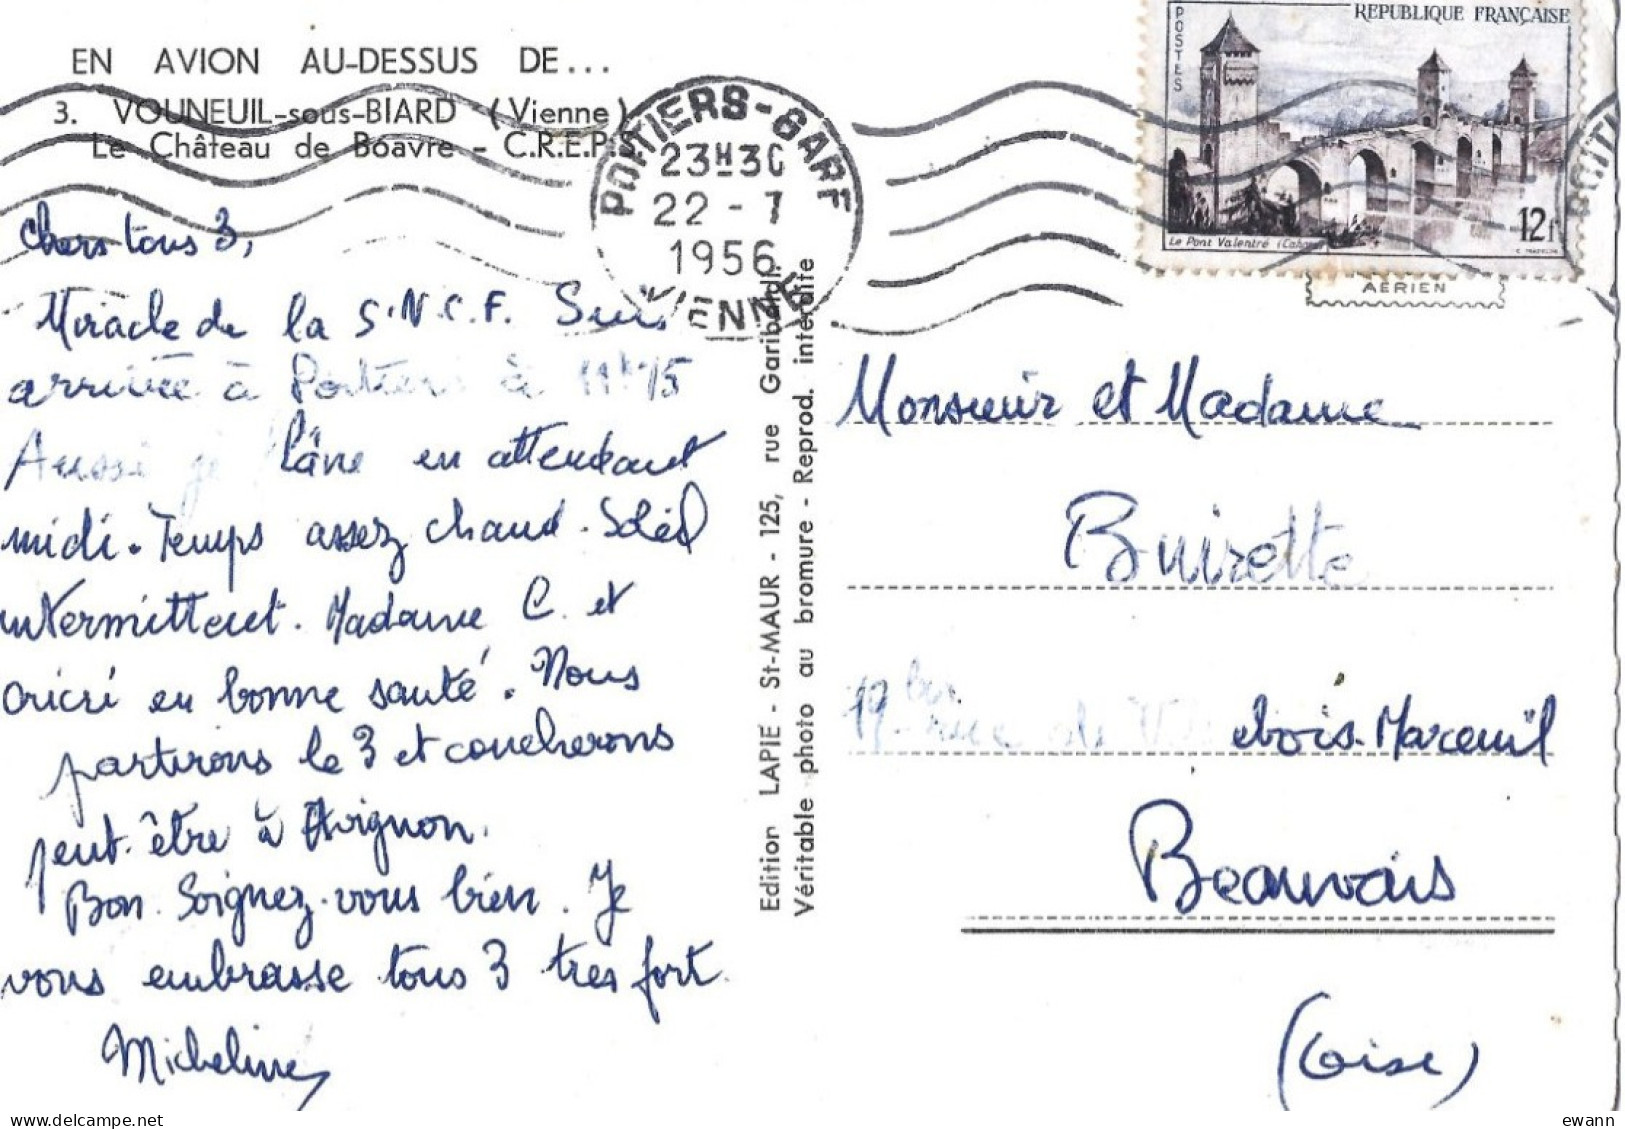 EN AVION AU-DESSUS DE...
3. VOUNEUIL-sous-BIARD (Vienne)
Le Château de Boavre - C.R.E.P.S.
Chers tous 3,
Miracle de la S.N.C.F. Suis
arrivée à Poitiers à 11h15
Aussi je flâne en attendant
midi. Temps assez chaud. Soleil
intermittent. Madame C. et
Cricri en bonne santé. Nous
partirons le 3 et coucherons
peut-être à Avignon.
Bon. Soignez-vous bien. Je
vous embrasse tous 3 très fort.
Micheline
POITIERS-GARE
23H30
22-7
1956
VIENNE
Edition LAPIE - St-MAUR - 125, rue Garibaldi.
Véritable photo au bromure - Reprod. interdite
REPUBLIQUE FRANÇAISE
POSTES
Le Pont Valentré (Cahors)
12f
AÉRIEN
Monsieur et Madame
Buirette
19 bis rue de ebois-Mareuil
Beauvais
(Oise)
ewann